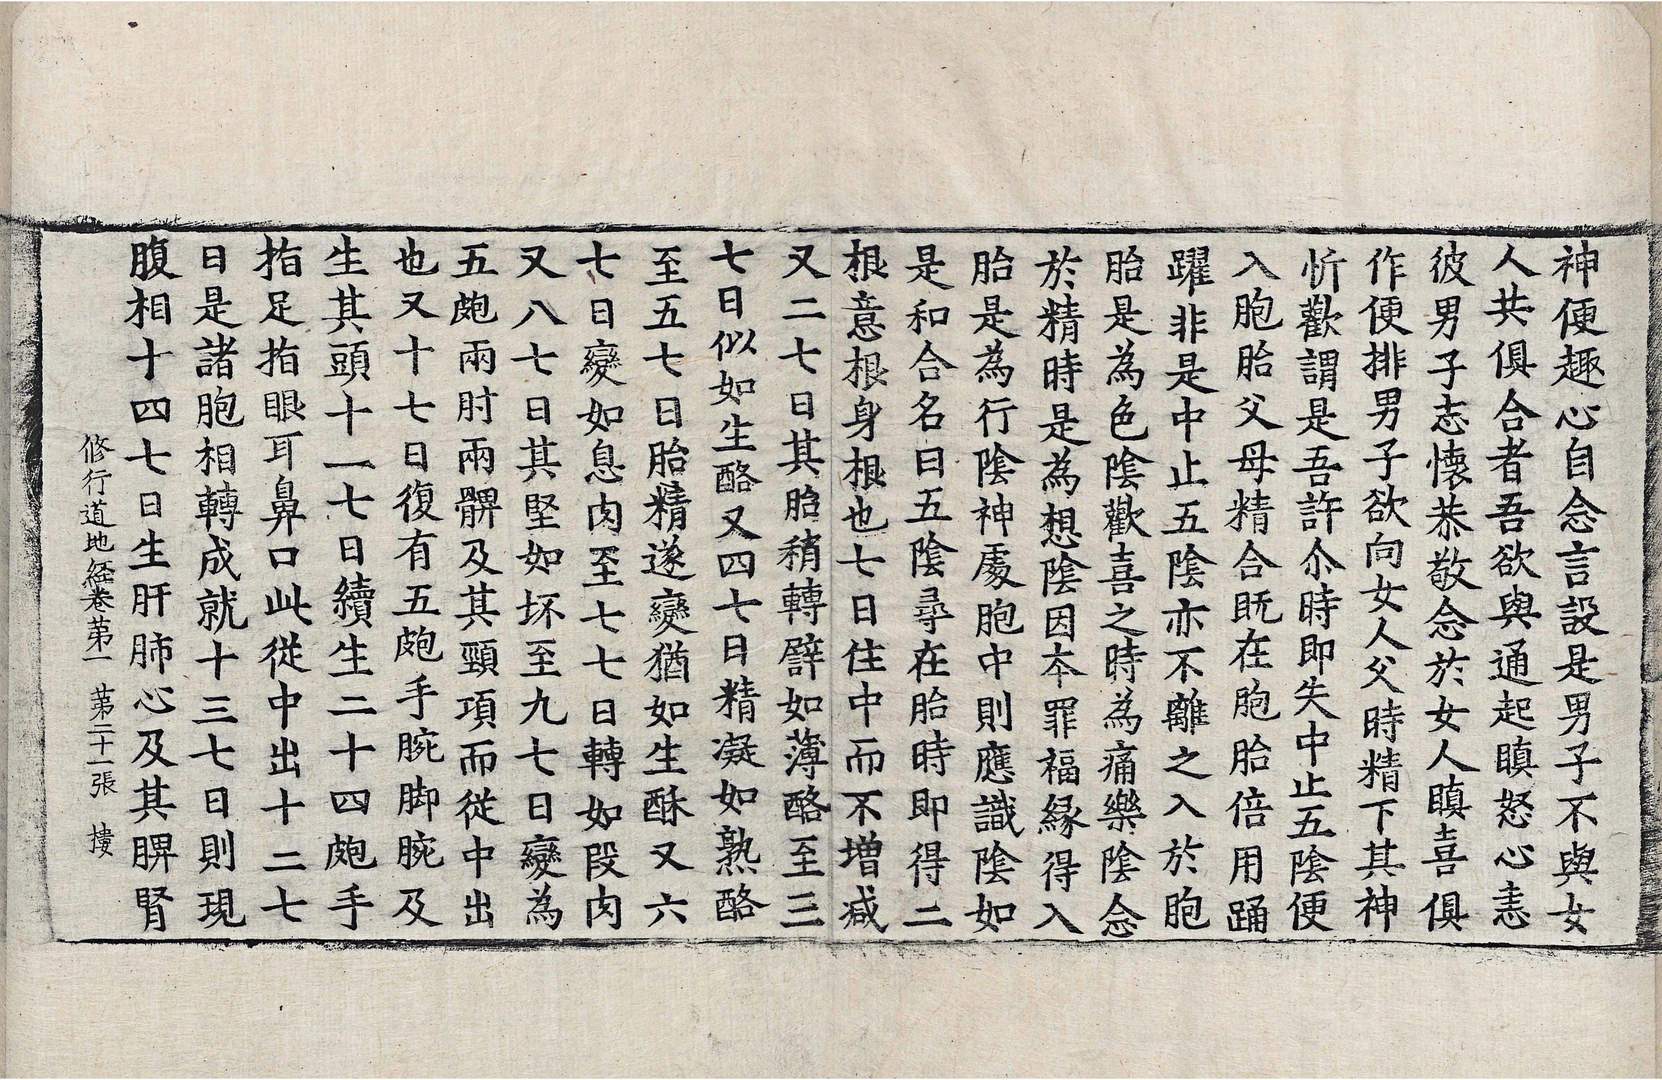 神便趣心自念言設是男子不與女
人共俱合者吾欲與通起瞋怒心恚
彼男子志懷恭敬念於女人瞋喜俱
作便排男子欲向女人父時精下其神
忻歡謂是吾許尒時即失中止五陰便
入胞胎父母精合旣在胞胎倍用踊
躍非是中止五陰亦不離之入於胞
胎是為色陰歡喜之時為痛樂陰念
於精時是為想陰因本罪福緣得入
胎是為行陰神處胞中則應識陰如
是和合名曰五陰尋在胎時即得二
根意根身根也七日住中而不增減
又二七日其胎稍轉譬如薄酪至三
七日似如生酪又四七日精凝如熟酪
至五七日胎精遂變猶如生酥又六
七日變如息肉至七七日轉如段肉
又八七日其堅如坏至九七日變為
五皰兩肘兩髀及其頸項而從中出
也又十七日復有五皰手腕脚腕及
生其頭十一七日續生二十四皰手
指足指眼耳鼻口此從中出十二七
日是諸胞相轉成就十三七日則現
腹相十四七日生肝肺心及其脾腎
修行道地經卷第一　第二十一張　樓